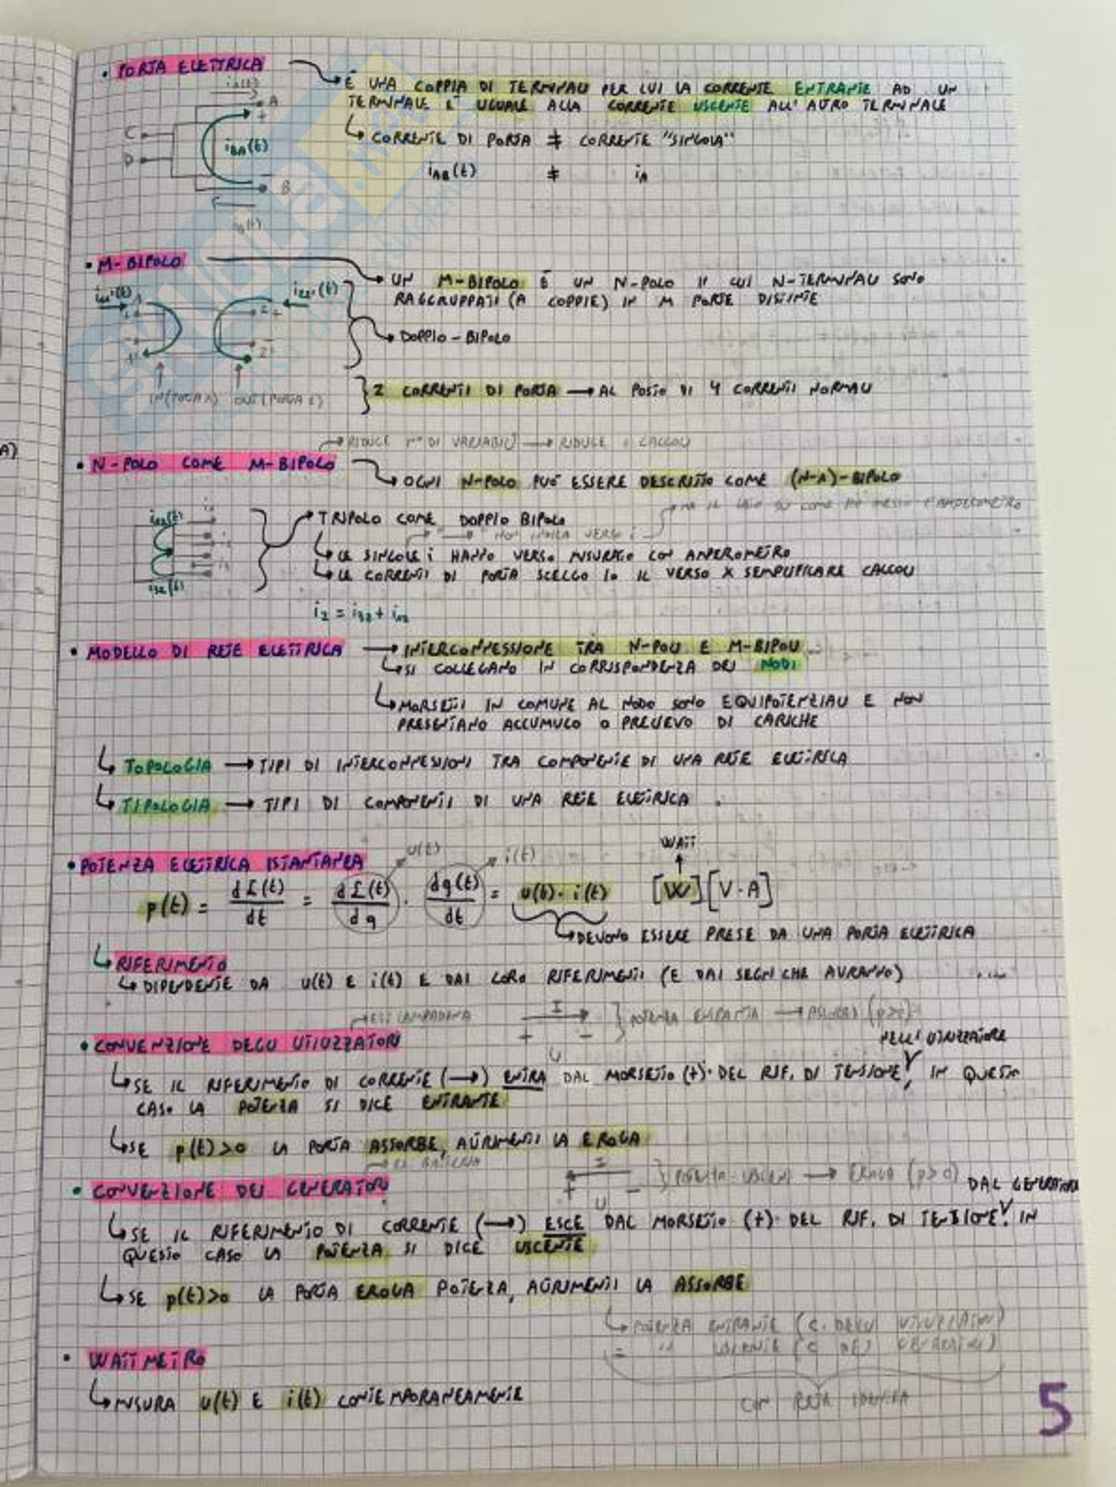 • PORTA ELETTRICA
È UNA COPPIA DI TERMINALI PER CUI LA CORRENTE ENTRANTE AD UN
TERMINALE È UGUALE ALLA CORRENTE USCENTE ALL'ALTRO TERMINALE
CORRENTE DI PORTA ≠ CORRENTE "SINGOLA"
iAB(t) ≠ iA
A
+
C
D
iBA(t)
B
• M-BIPOLO
UN M-BIPOLO È UN N-POLO I CUI N-TERMINALI SONO
RAGGRUPPATI (A COPPIE) IN M PORTE DISTINTE
DOPPIO-BIPOLO
2 CORRENTI DI PORTA → AL POSTO DI 4 CORRENTI NORMALI
RIDUCE n° DI VARIABILI → RIDUCE I CALCOLI
• N-POLO COME M-BIPOLO
OGNI N-POLO PUÒ ESSERE DESCRITTO COME (N-1)-BIPOLO
TRIPOLO COME DOPPIO BIPOLO
NON INDICA VERSO i
LE SINGOLE i HANNO VERSO MISURATO CON AMPEROMETRO
LE CORRENTI DI PORTA SCELGO IO IL VERSO X SEMPLIFICARE CALCOLI
i2 = i32 + i12
• MODELLO DI RETE ELETTRICA → INTERCONNESSIONE TRA N-POLI E M-BIPOLI
SI COLLEGANO IN CORRISPONDENZA DEI NODI
MORSETTI IN COMUNE AL NODO SONO EQUIPOTENZIALI E NON
PRESENTANO ACCUMULO O PRELIEVO DI CARICHE
TOPOLOGIA → TIPI DI INTERCONNESSIONI TRA COMPONENTE DI UNA RETE ELETTRICA
TIPOLOGIA → TIPI DI COMPONENTI DI UNA RETE ELETTRICA
• POTENZA ELETTRICA ISTANTANEA
u(t) i(t) WATT
p(t) = dL(t)/dt = dL(t)/dq · dq(t)/dt = u(t) · i(t) [W] [V·A]
DEVONO ESSERE PRESE DA UNA PORTA ELETTRICA
RIFERIMENTO
DIPENDENTE DA u(t) E i(t) E DAI LORO RIFERIMENTI (E DAI SEGNI CHE AVRANNO)
ES: LAMPADINA
I
+ −
U
POTENZA ENTRANTE → ASSORBE (p>0)
• CONVENZIONE DEGLI UTILIZZATORI
NELL'UTILIZZATORE
SE IL RIFERIMENTO DI CORRENTE (→) ENTRA DAL MORSETTO (+) DEL RIF. DI TENSIONE, IN QUESTO
CASO LA POTENZA SI DICE ENTRANTE
SE p(t)>0 LA PORTA ASSORBE, ALTRIMENTI LA EROGA
ES. BATTERIA
I
+ −
U
POTENZA USCENTE → EROGA (p>0)
• CONVENZIONE DEI GENERATORI
DAL GENERATORE
SE IL RIFERIMENTO DI CORRENTE (→) ESCE DAL MORSETTO (+) DEL RIF. DI TENSIONE. IN
QUESTO CASO LA POTENZA SI DICE USCENTE
SE p(t)>0 LA PORTA EROGA POTENZA, ALTRIMENTI LA ASSORBE
POTENZA ENTRANTE (C. DEGLI UTILIZZATORI)
= " USCENTE (C. DEI GENERATORI)
• WATTMETRO
MISURA u(t) E i(t) CONTEMPORANEAMENTE
5